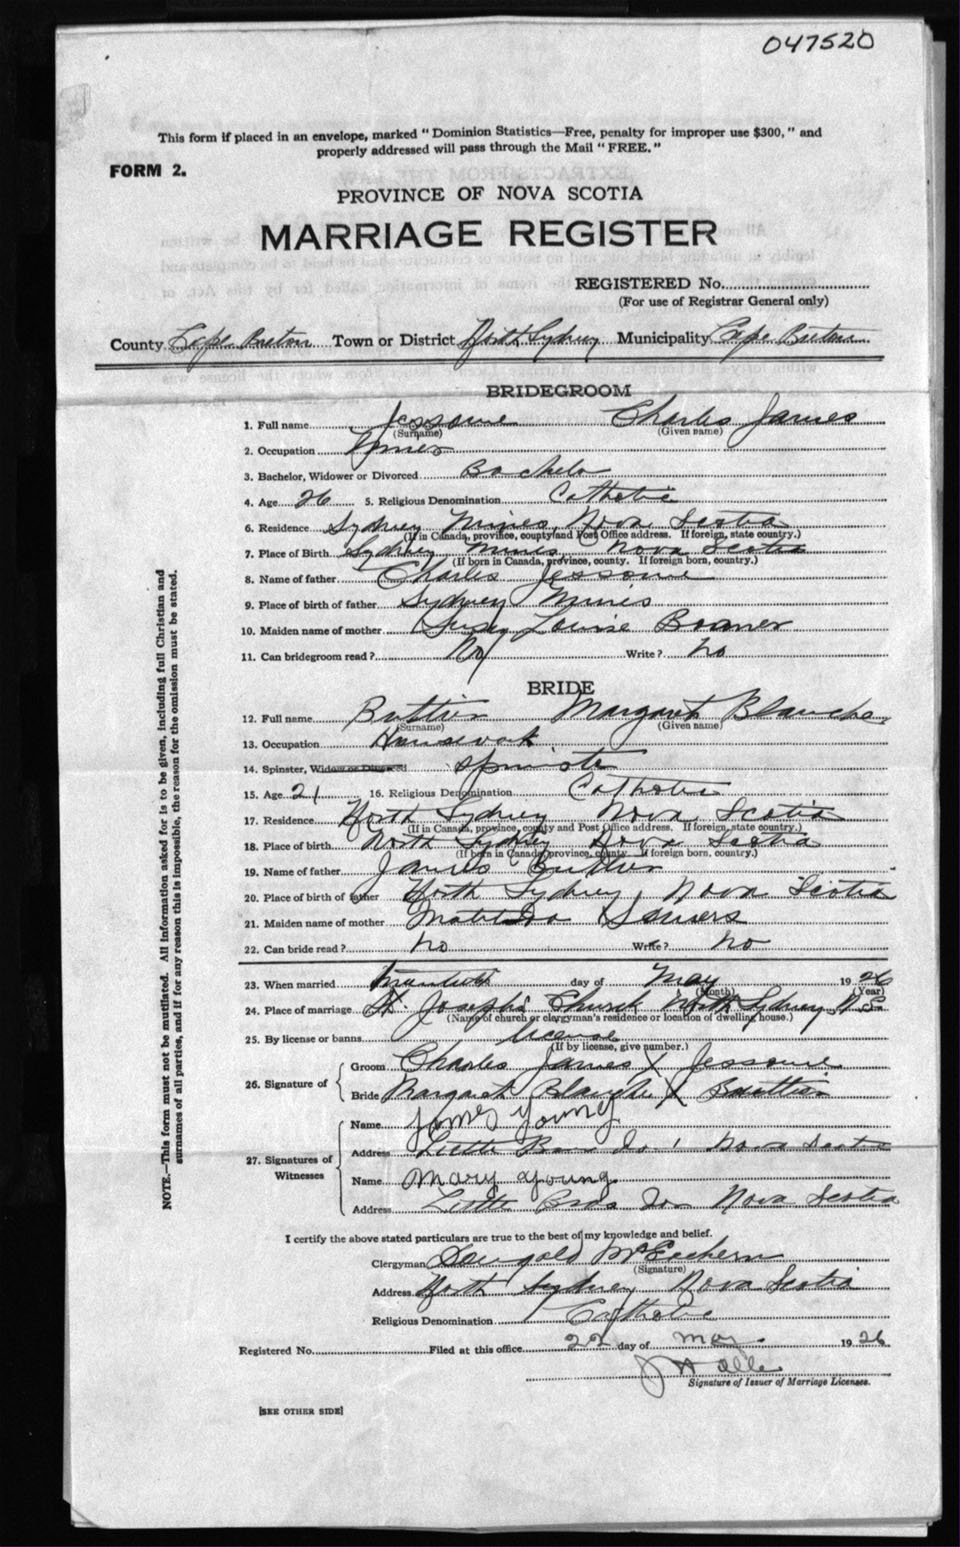 047520
This form if placed in an envelope, marked "Dominion Statistics—Free, penalty for improper use $300," and
properly addressed will pass through the Mail "FREE."
FORM 2.
PROVINCE OF NOVA SCOTIA
MARRIAGE REGISTER
REGISTERED No.
(For use of Registrar General only)
County Cape Breton Town or District North Sydney Municipality Cape Breton
BRIDEGROOM
1. Full name Jessome Charles James
(Surname) (Given name)
2. Occupation
3. Bachelor, Widower or Divorced Bachelor
4. Age 26 5. Religious Denomination Catholic
6. Residence Sydney Mines, Nova Scotia
(If in Canada, province, county and Post Office address. If foreign, state country.)
7. Place of Birth Sydney Mines Nova Scotia
(If born in Canada, province, county. If foreign born, country.)
8. Name of father Charles Jessome
9. Place of birth of father Sydney Mines
10. Maiden name of mother Susy Louise
11. Can bridegroom read? No Write? No
BRIDE
12. Full name Buttier Margaret Blanche
(Surname) (Given name)
13. Occupation Housework
14. Spinster, Widow or Divorced Spinster
15. Age 21 16. Religious Denomination Catholic
17. Residence North Sydney Nova Scotia
(If in Canada, province, county and Post Office address. If foreign, state country.)
18. Place of birth North Sydney Nova Scotia
(If born in Canada, province, county. If foreign born, country.)
19. Name of father James
20. Place of birth of father North Sydney, Nova Scotia
21. Maiden name of mother Matilda
22. Can bride read? no Write? no
23. When married day of May 1926
(Month) (Year)
24. Place of marriage St. Joseph's Church North Sydney N.S.
(Name of church or clergyman's residence or location of dwelling house.)
25. By license or banns license
(If by license, give number.)
26. Signature of
Groom Charles James X Jessome
Bride Margaret Blanche X Buttier
27. Signatures of Witnesses
Name James Young
Address Little Bras Dor Nova Scotia
Name Mary Young
Address Little Bras Dor Nova Scotia
I certify the above stated particulars are true to the best of my knowledge and belief.
Clergyman McEachern
(Signature)
Address North Sydney Nova Scotia
Religious Denomination Catholic
Registered No. Filed at this office 22 day of May 1926
Signature of Issuer of Marriage Licenses.
[SEE OTHER SIDE]
NOTE.—This form must not be mutilated. All information asked for is to be given, including full Christian and
surnames of all parties, and if for any reason this is impossible, the reason for the omission must be stated.